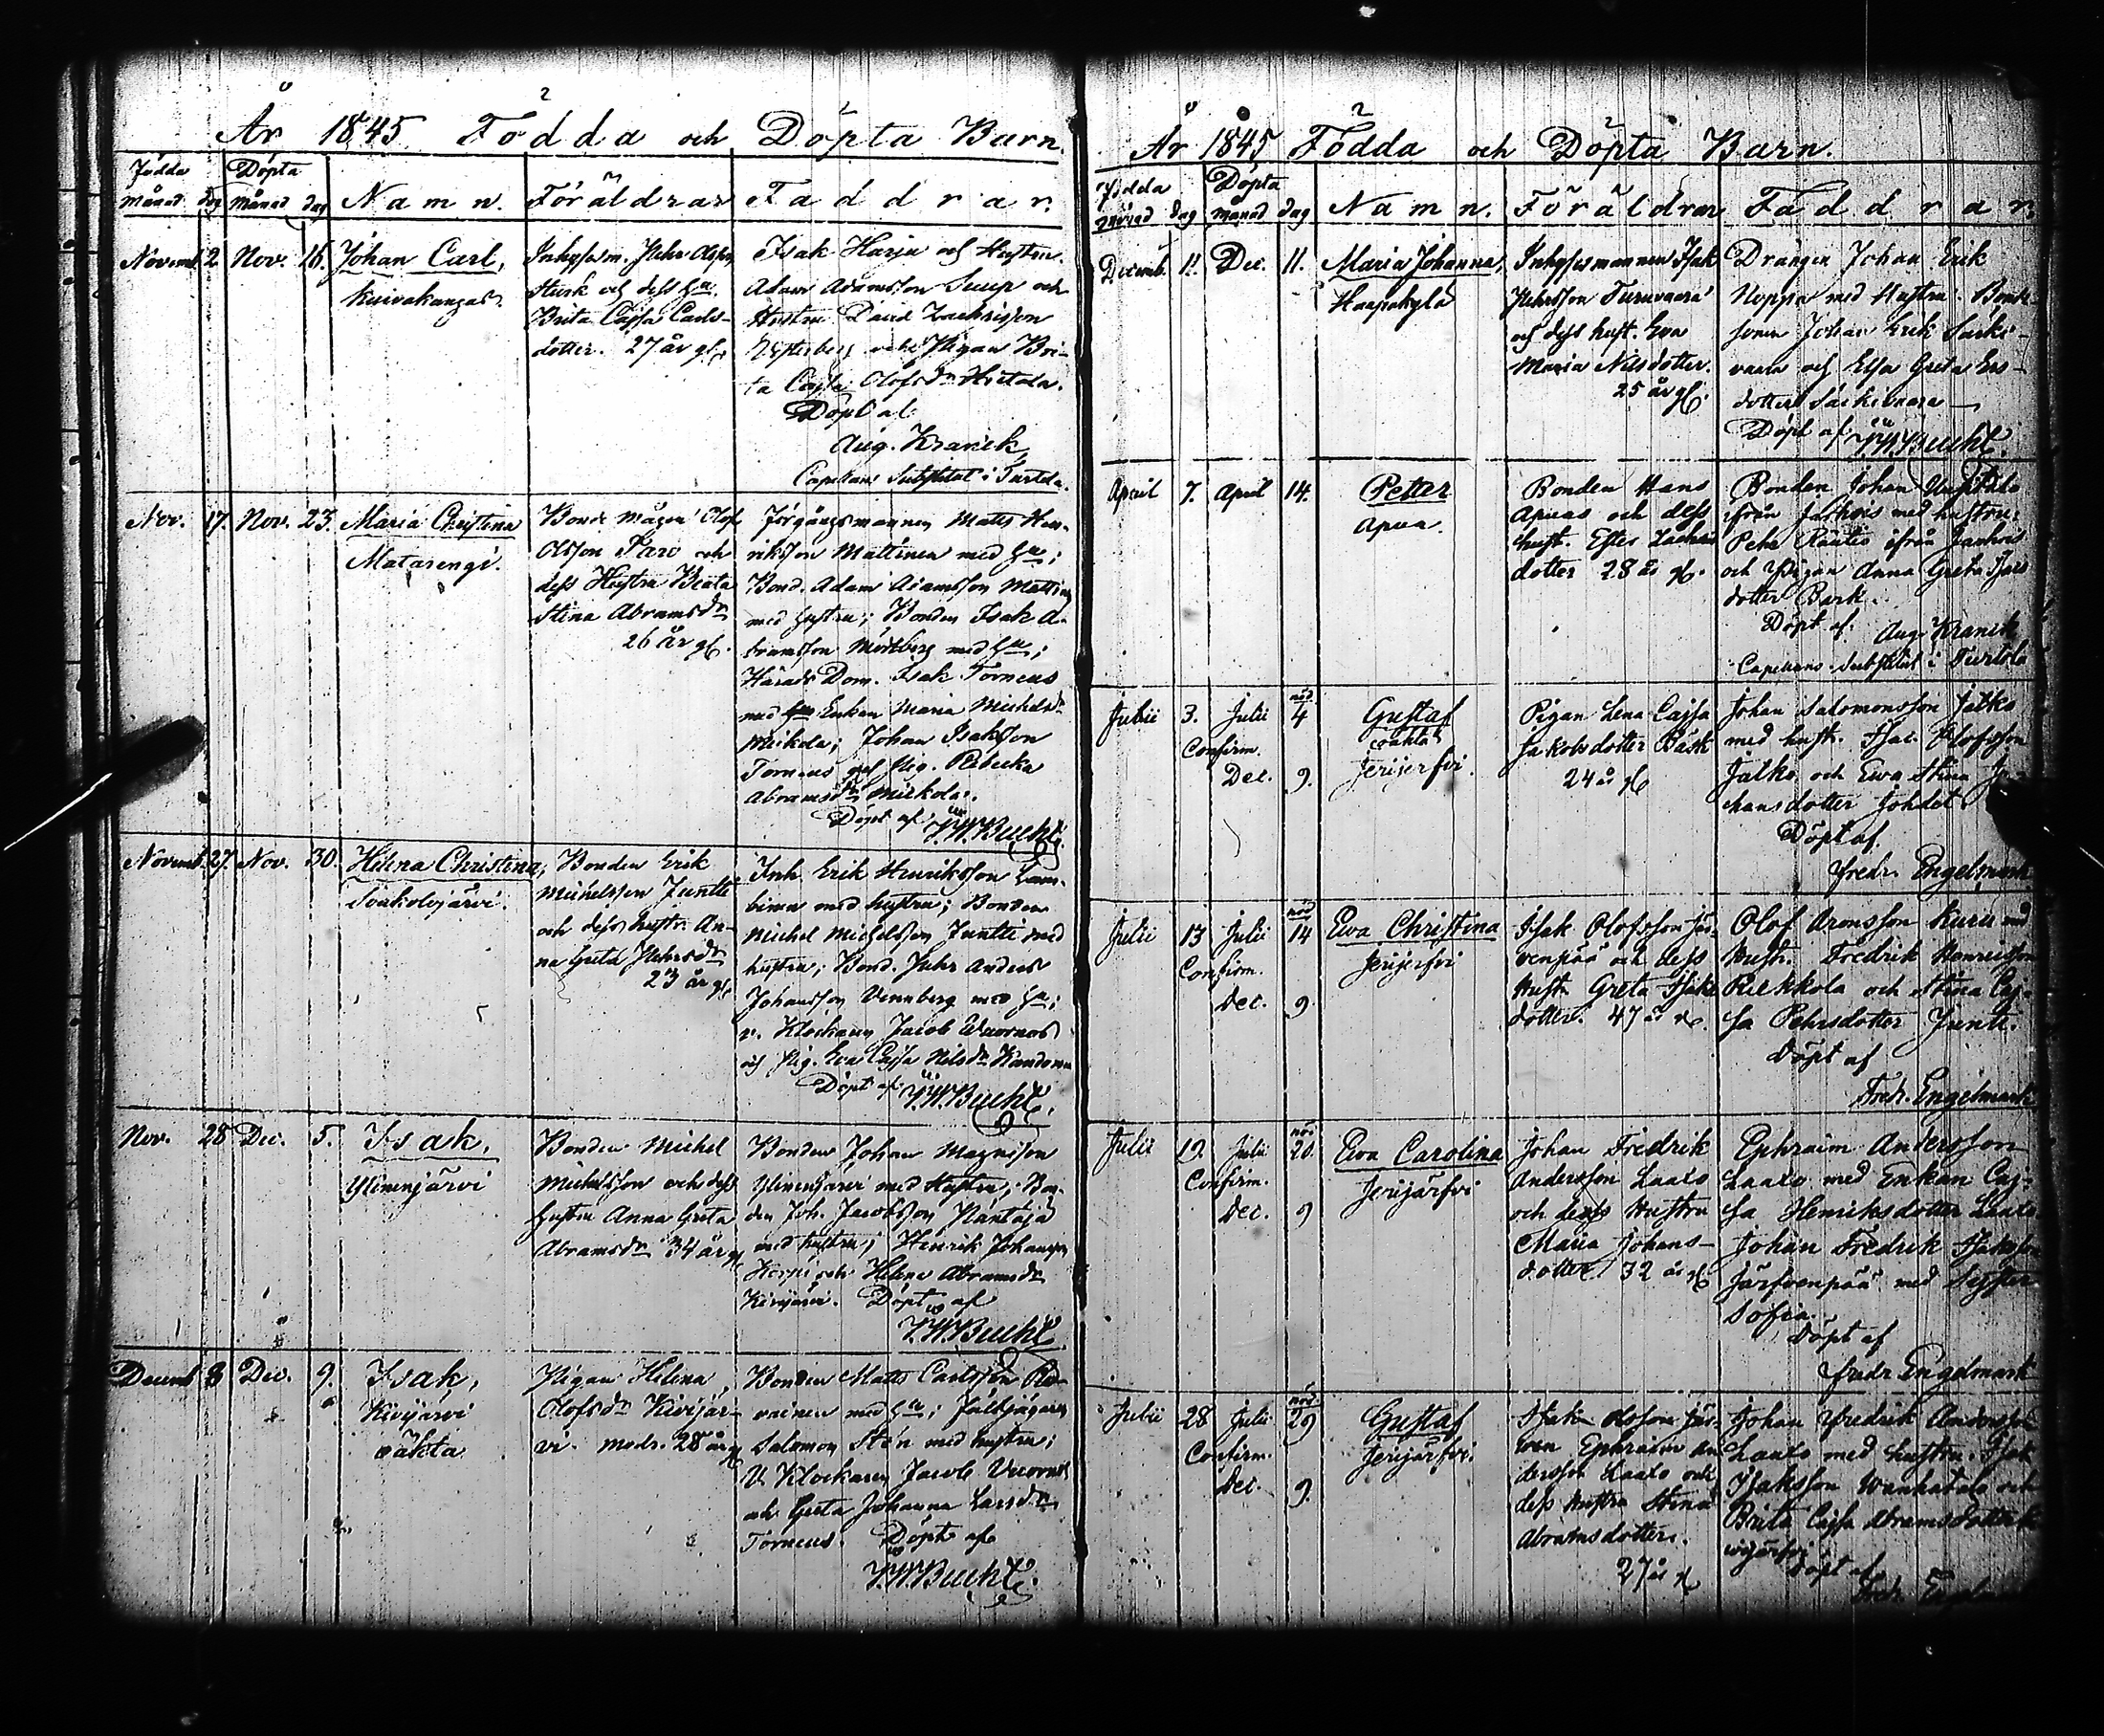 År 1845 Födda och Döpta Barn.
Födda Döpta
månad dag månad dag Namn. Föräldrar Faddrar.
Novemb. 2 Nov. 16. Johan Carl,
Kuivakangas.
Inhysesm. Pehr Olsson
och dess hu
Brita Cajsa Carls-
dotter. 27 år gl.
Isak Harju och Hustru.
Adam Adamsson och
Hustru David Zachrisson
och Pigan Bri-
ta Cajsa Olofsdr Hietala.
Döpt af
Aug. Kranck,
Capellans Substitut i Turtola.
Nov. 17. Nov. 23. Maria Christina
Matarengi.
Bonde mågen Olof
Olsson och
dess Hustru Beata
Stina Abramsdr
26 år gl.
Matts Hen-
riksson Mattinen med hu;
Bond. Adam Adamsson
med hustru; Bonden Isak A-
bramsson Mörtberg med hu;
Härads Dom. Isak Torneus
med Enkan Maria Michelsdr
Mickola; Johan Isaksson
Torneus och Pig. Rebecka
Abramsdr Mickola.
Döpt af
Bucht.
Novemb. 27. Nov. 30. Helena Christina,
Soukolojärvi.
Bonden Erik
Michelsson Juntti
och dess hustr. An-
na Greta Pehrsdr
23 år gl.
Inh. Erik Henriksson Lam-
binen med hustru; Bonden
Michel Michelsson Juntti med
hustru; Bond. Pehr Anders
Johansson Vennberg med hu;
v. Klockaren Jacob
och Pig. Eva Cajsa Nilsdr
Döpt af
Bucht.
Nov. 28 Dec. 5. Isak.
Ylinenjärvi
Bonden Michel
Michelsson och dess
hustru Anna Greta
Abramsdr 34 år gl.
Bonden Johan Magnisson
Ylinenjärvi med Hustru; Bon-
den Joh. Jacobsson
med hustru; Henrik Johansson
och Helena Abramsdr
Kivijärvi. Döpt af
Bucht.
Decemb 8 Dec. 9. Isak,
Kivijärvi
oäkta
Pigan Helena
Olofsdr Kivijär-
vi. modr. 28 år gl.
Bonden Matts Carlsson
med hu; Fältjägaren
Salomon Stön med hustru;
V. Klockaren Jacob
och Greta Johanna Larsdr
Torneus. Döpt af
Bucht.
År 1845 Födda och Döpta Barn.
Födda Döpta
månad dag månad dag Namn. Föräldrar Faddrar.
Decemb. 11. Dec. 11. Maria Johanna,
Haapakylä
Inhysesmannen Isak
Pehrsson Turuvaara
och dess hust. Eva
Maria Nilsdotter.
25 år gl.
Drängen Johan Erik
Noppa med Hustru. Bonde-
sonen Johan Erik Säcki-
vaara och Elsa Greta Ers-
dotter Säckivaara
Döpt af
Bucht.
April 7. April 14. Petter
Apua.
Bonden Hans
Apuas och dess
hust. Ester Zachris
dotter 28 år gl.
Bonden Johan
ifrån Jarhois med hustru:
Pehr Rautio ifrån Jarhois
och Pigan Anna Greta
dotter Bark.
Döpt af Aug. Kranck
Capellans Substitut i Turtola
Julii 3. Julii nöd. 4 Gustaf
Confirm. oäkta
Dec. 9. Jerijerfvi.
Pigan Lena Cajsa
Jakobsdotter Bäsk
24 år gl.
Johan Salomonsson Jatko
med hust. Isac Olofsson
Jatko och Ewa Stina Jo-
hansdotter
Döpt af.
Fredr. Engelmark
Julii 13 Julii nöd 14 Ewa Christina
Confirm. Jerijerfvi
Dec. 9.
Isak Olofsson Jär-
venpää och dess
Hust. Greta Isaks
dotter. 47 år gl.
Olof Aronsson Kuru med
Hustr. Fredrik Henriksson
Rickkola och Stina Caj-
sa Pehrsdotter Juntti.
Döpt af
Fredr. Engelmark
Julii 19. Julii nöd 20. Ewa Carolina
Confirm. Jerijärfvi
Dec. 9
Johan Fredrik
Andersson Laaxo
och dess Hustru
Maria Johans-
dotter. 32 år gl.
Ephraim Andersson
Laaxo med Enkan Caj-
sa Henriksdotter Laaxo.
Johan Fredrik Isaksson
Järfvenpää med Syster
Sofia.
Döpt af
Fredr Engelmark
Julii 28 Julii nöd. 29 Gustaf
Confirm. Jerijärfvi
Dec. 9.
Ephraim An
dersson Laaxo och
dess Hustru Stina
Abramsdotter.
27 år gl.
Johan Fredrik Andersson
Laaxo med hustru. Isak
Isaksson Wanhatalo och
Brita Cajsa Abramsdotter
Döpt af
Fredr. Engelmark